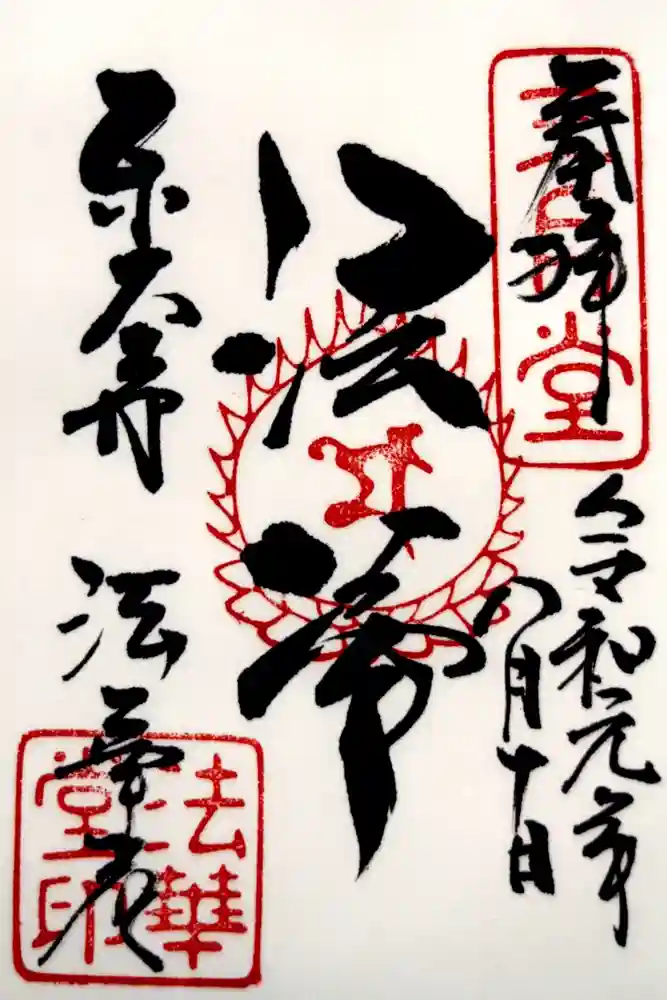 奉拝
三月堂
令和元年
八月十日
法華
東大寺 法華堂
法華
堂印